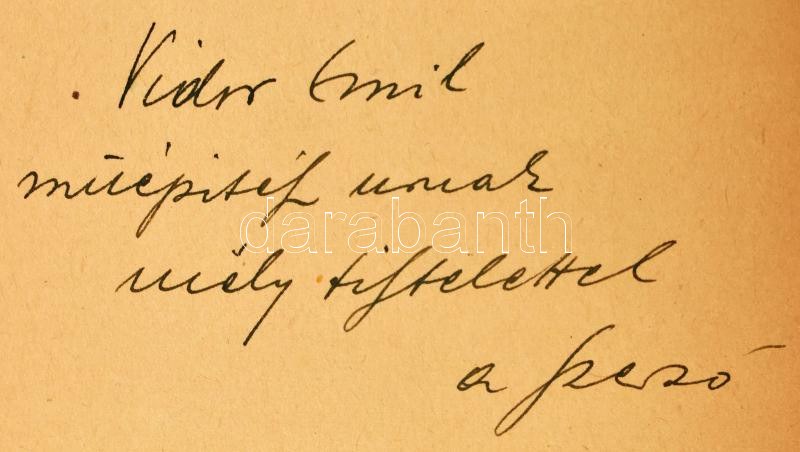 Vidor Emil
műépitész urnak
mély tisztelettel
a szerző
darabanth